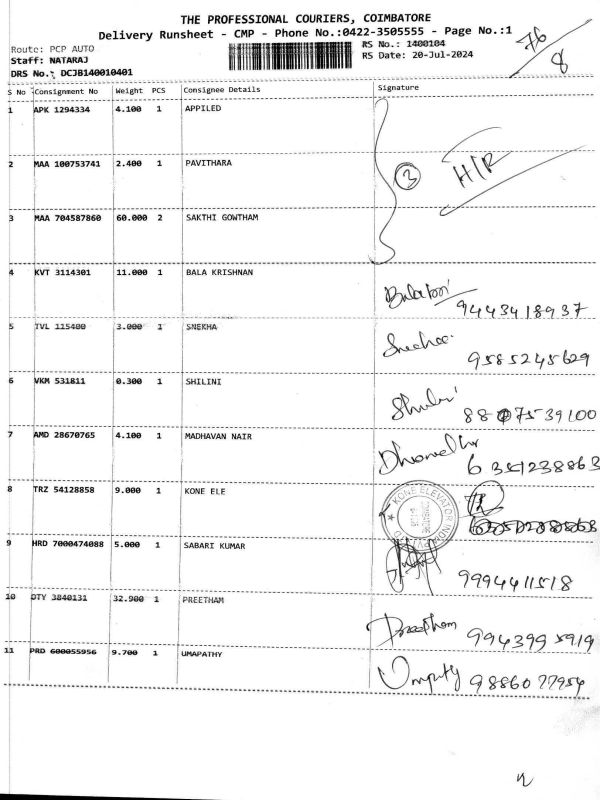 THE PROFESSIONAL COURIERS, COIMBATORE
Delivery Runsheet - CMP - Phone No.:0422-3505555 - Page No.:1
76
8
Route: PCP AUTO
RS No.: 1400104
Staff: NATARAJ
RS Date: 20-Jul-2024
DRS No.: DCJB140010401
S No Consignment No Weight PCS Consignee Details Signature
1 APK 1294334 4.100 1 APPILED
2 MAA 100753741 2.400 1 PAVITHARA
3 H/R
3 MAA 704587860 60.000 2 SAKTHI GOWTHAM
4 KVT 3114301 11.000 1 BALA KRISHNAN
9443418937
5 TVL 115400 3.000 1 SNEKHA
9585245629
6 VKM 531811 0.300 1 SHILINI
7 AMD 28670765 4.100 1 MADHAVAN NAIR
8 TRZ 54128858 9.000 1 KONE ELE
KONE ELEVATOR INDIA
9 HRD 7000474088 5.000 1 SABARI KUMAR
9994411518
10 OTY 3840131 32.900 1 PREETHAM
Preetham 9943995919
11 PRD 600055956 9.700 1 UMAPATHY